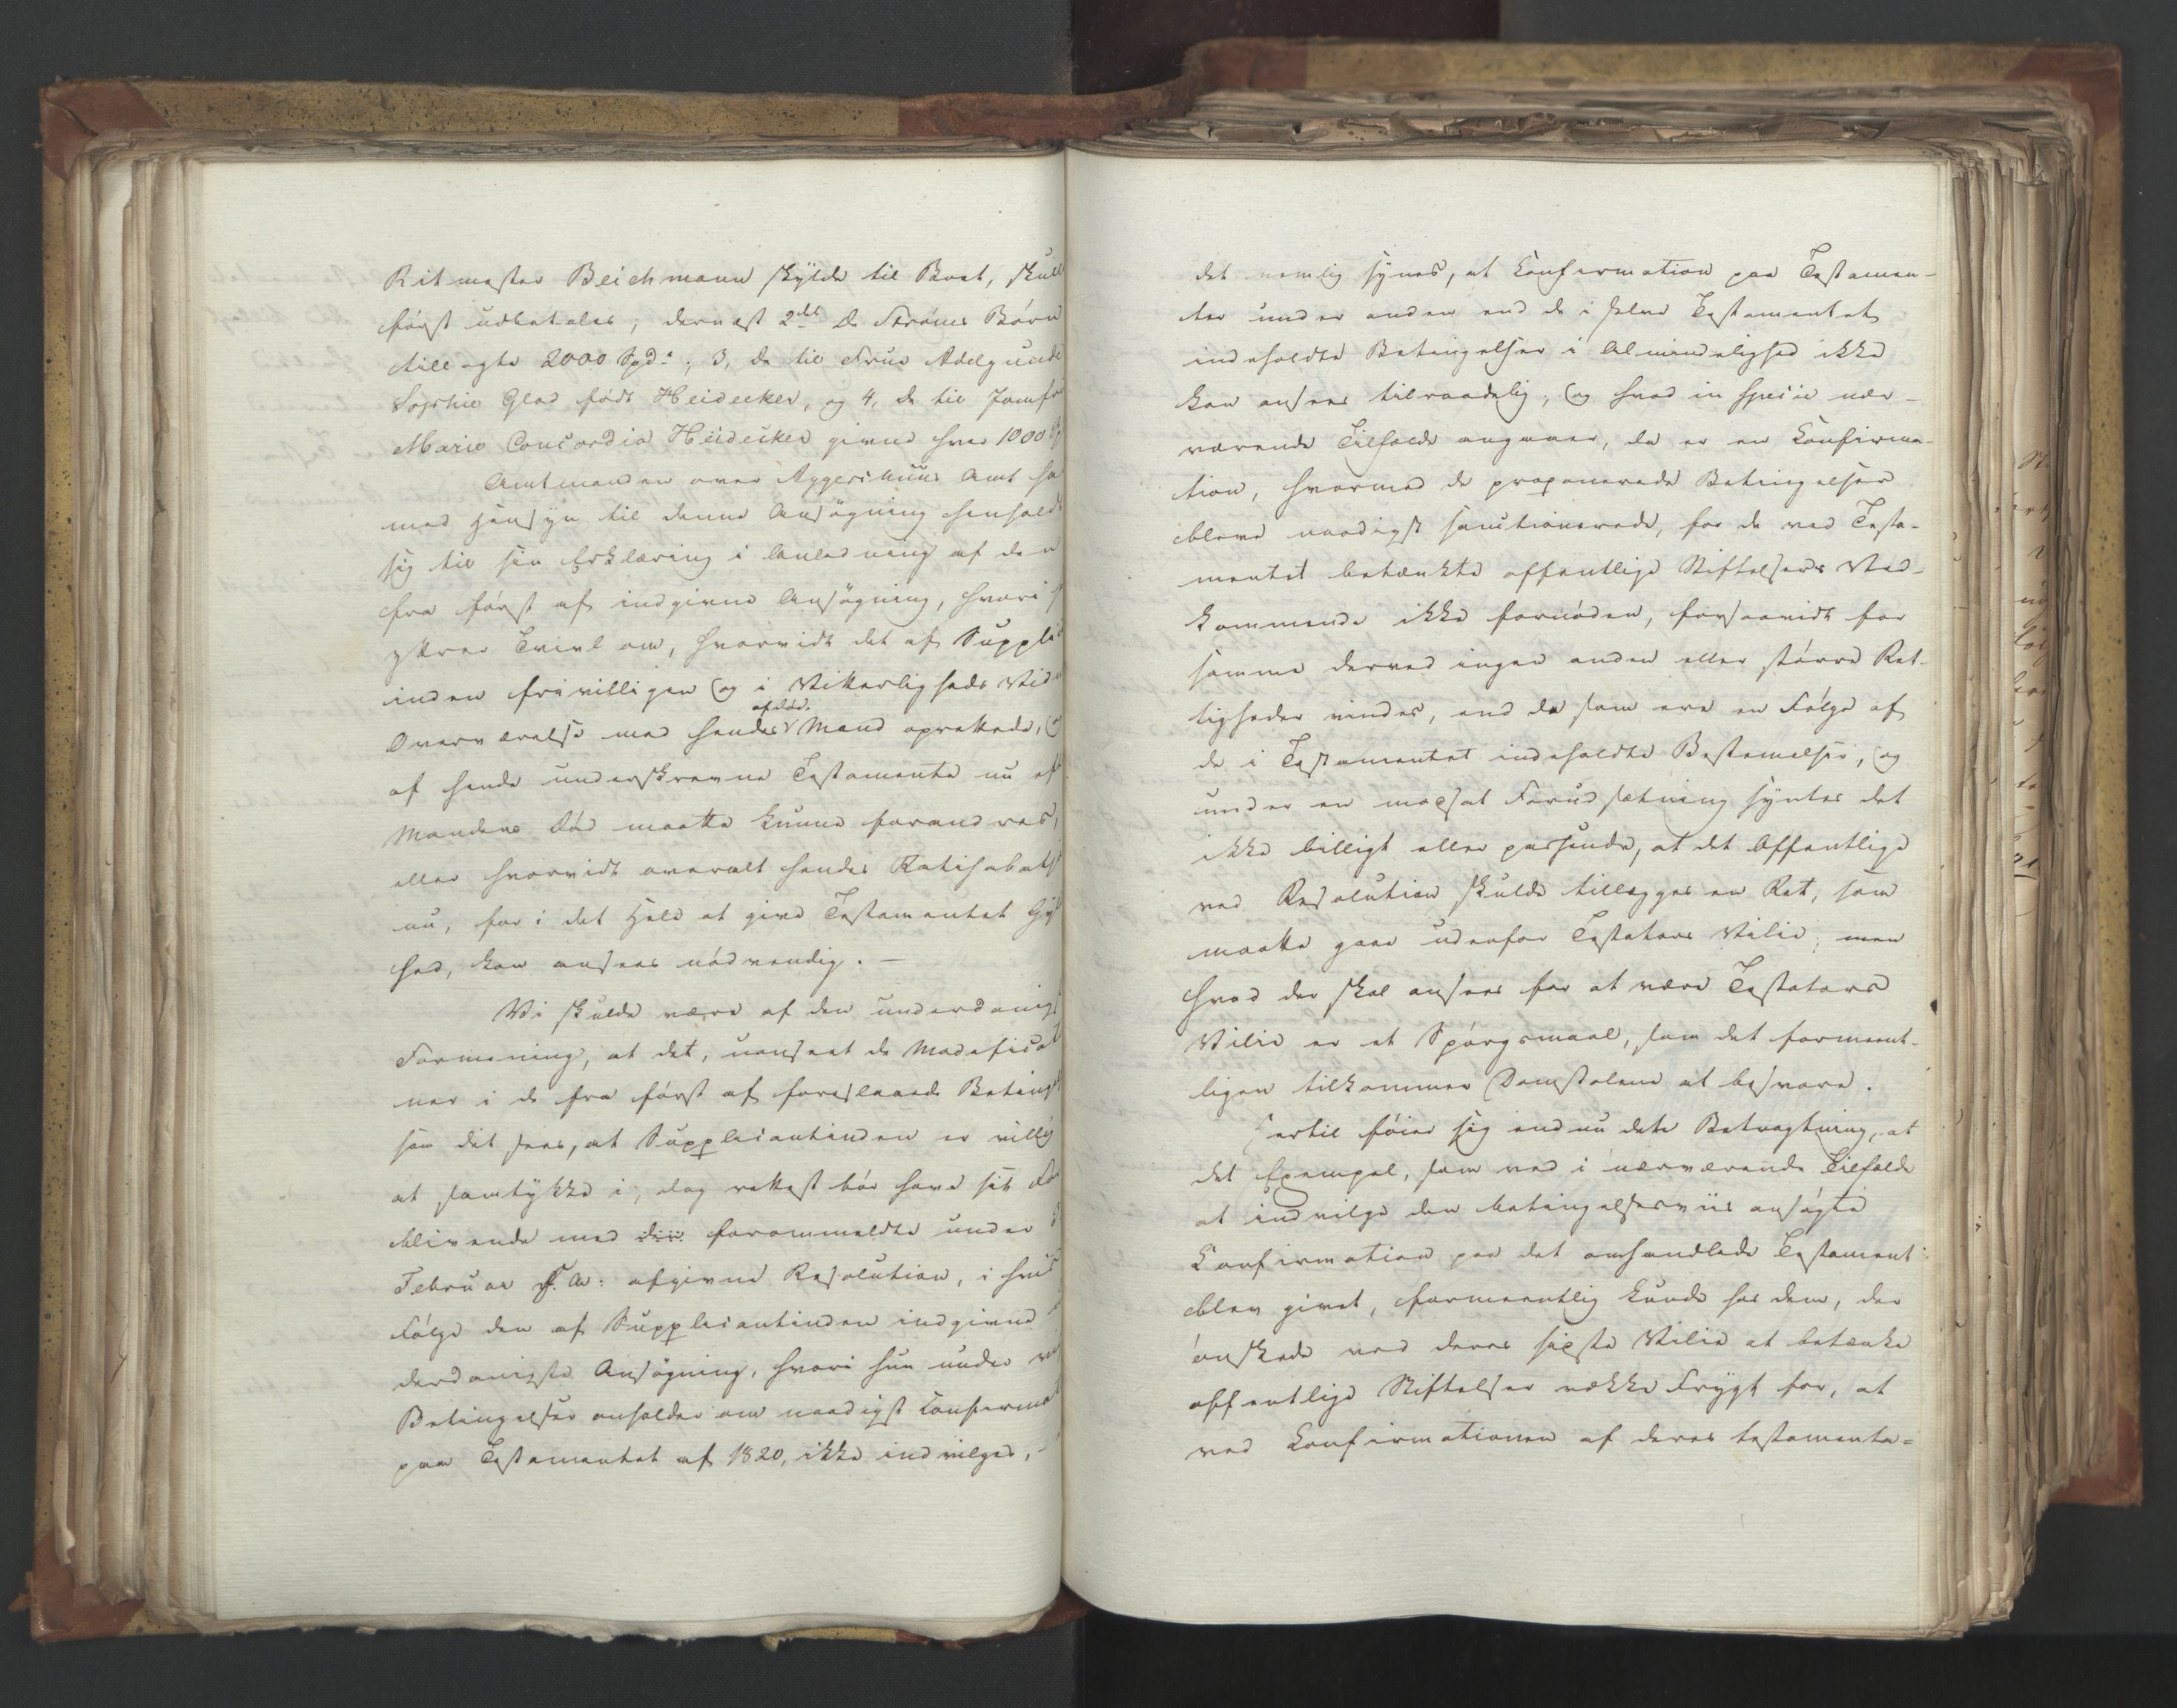 Ritmester Beichmann skylde til Boet, skull
først udbetales; dernæst 2det De Strøms Børn
tillagte 2000 Spd.; 3, de til Frue Adelgunde
Sophie Glad født Heidecker, og 4, de til Jomfr
Marie Concordia Heidecker givne hver 1000
Amtmanden over Aggershuus Amt ha
med Hensyn til denne Ansøgning henholdt
sig til sin Erklæring i Anledning af den
fra først af indgivne Ansøgning, hvori
yttres Tvivl om, hvorvidt det af Suppli
inden frivilligen og i Vitterligheds Vid
Overværelse med hendes afdød. Mand oprettede, og
af hende underskrevne Testamente nu eft
Mandens Død maatte kunne forandres,
eller hvorvidt overalt hendes Ratihabati
nu, for i det Hele at give Testamentet Gyl
hed, kan ansees nødvendig. –
Vi skulde være af den underdanigst
Formening, at det, uanseet de Modificati
ner i de fra først af foreslaaede Beting
som det sees, at Supplicantinden er villig
at samtykke i, dog rettest bør have sit For
blivende med forommeldte under
Februar f. A: afgivne Resolution, i hvis
Følge den af Supplicantinden indgivne
derdanigste Ansøgning, hvori hun under
Betingelser anholder om naadigst Confirmat
paa Testamentet af 1820, ikke indvilges, –
det nemlig synes, at Confirmation paa Testamen-
ter under anden end de i selve Testamentet
indeholdte Betingelser i Almindelighed ikke
kan ansees tilraadelig, og hvad in specie nær-
værende Tilfælde angaaer, da er en Confirma-
tion, hvormed de proponerede Betingelser
bleve naadigst sanctionerede, for de ved Testa-
mentet betænkte offentlige Stiftelsers Ved-
kommende ikke fornøden, forsaavidt for
samme derved ingen anden eller større Ret-
tigheder vindes, end de som ere en Følge af
de i Testamentet indeholdte Bestemelser, og
under en modsat Forudsætning syntes det
ikke billigt eller passende, at det Offentlige
ved Resolution skulde tillægges en Ret, som
maatte gaae udenfor Testators Villie; men
hvad der skal ansees for at være Testators
Villie er et Spørgsmaal, som det formeent-
ligen tilkommer Domstolene at besvare.
Hertil føier sig endnu dette Betragtning, at
det Exempel, som ved i nærværende Tilfælde
at indvilge den betingelsesviis ansøgte
Confirmation paa det omhandlede Testament
blev givet, formeentlig kunde hos dem, der
ønskede ved deres sidste Villie at betænke
offentlige Stiftelser vække Frygt for, at
ved Confirmationen af deres testamenta=